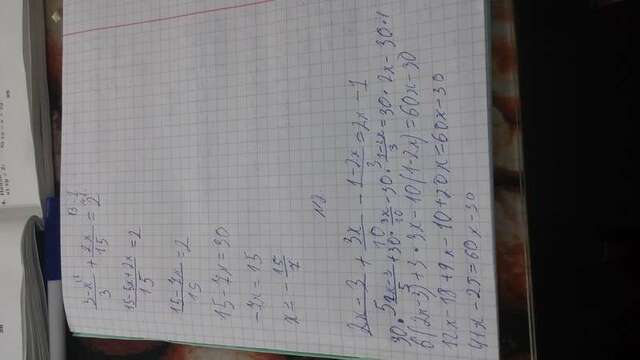 3-x/3 + 2x/15 = 2
15-5x+2x/15 = 2
15-3x/15 = 2
15-3x=30
-3x=15
x=-15/3
№2
2x-3/5 + 3x/10 - 1-2x/3 = 2x-1
30·2x-3/5+30·3x/10-30·1-2x/3=30·2x-30·1
6(2x-3)+3·3x-10(1-2x)=60x-30
12x-18+9x-10+20x=60x-30
41x-25=60x-30